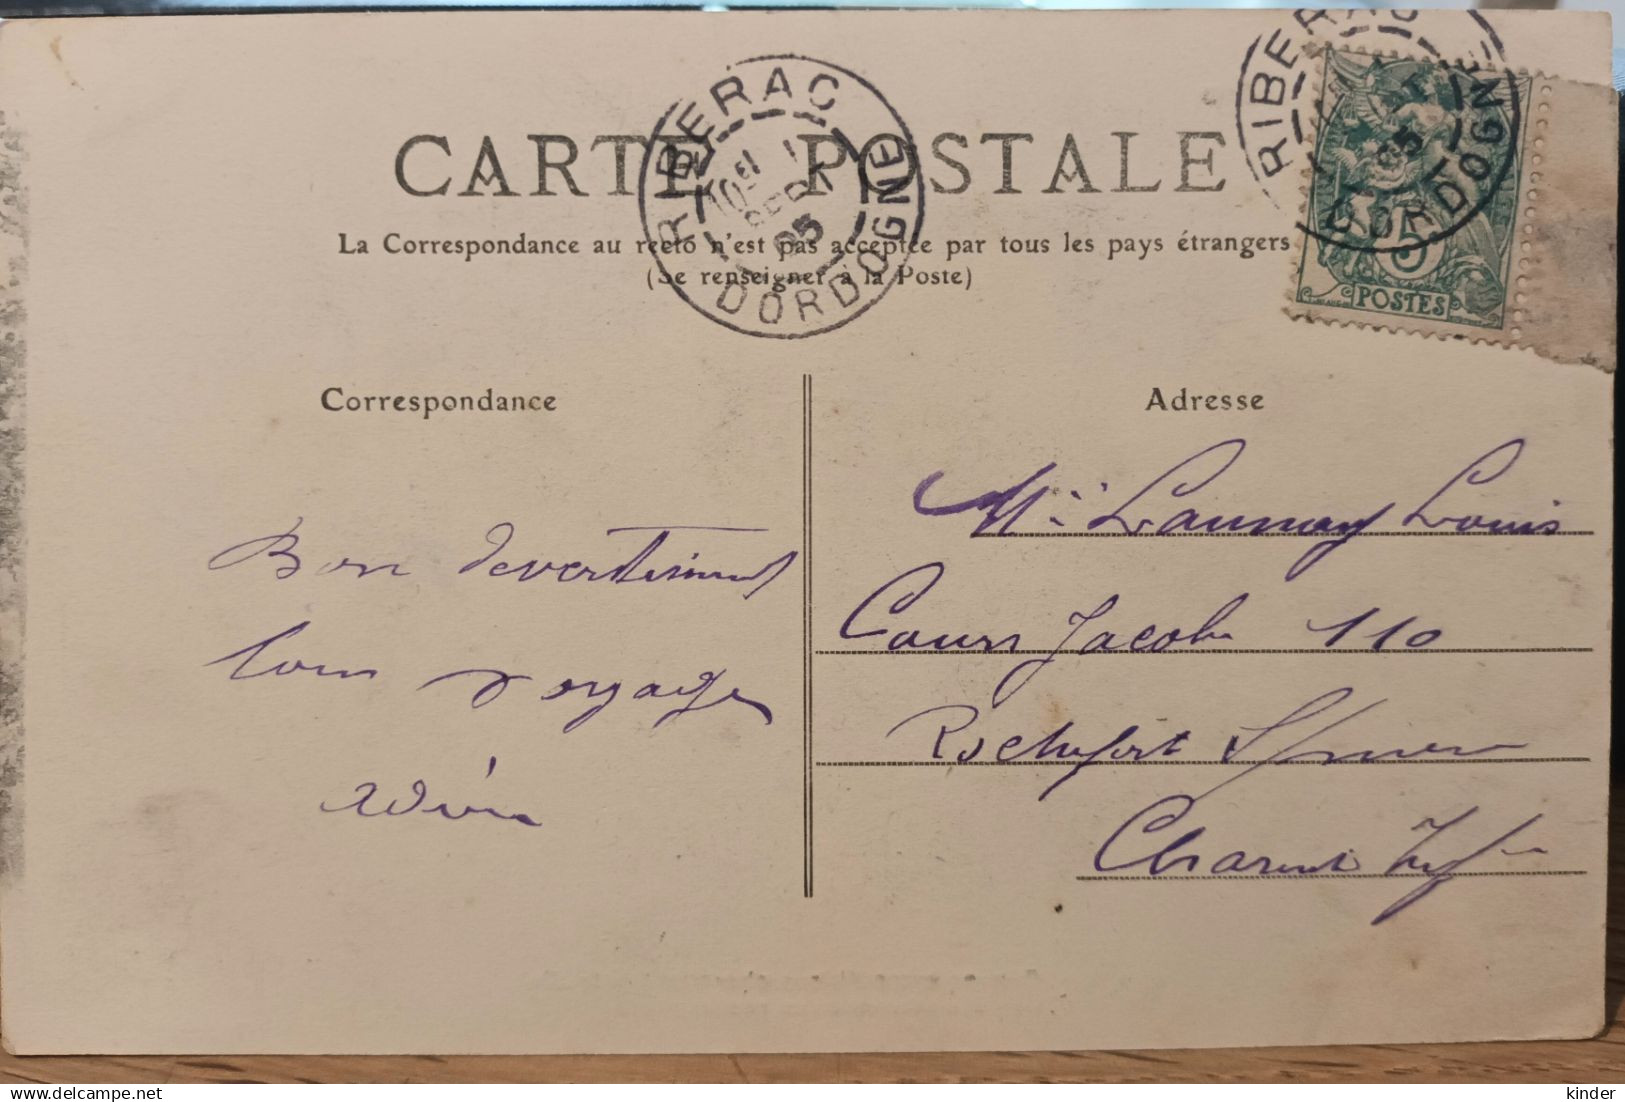 RIBERAC
10 SEPT
05
DORDOGNE
RIBERAC
05
DORDOGNE
5
POSTES
CARTE POSTALE
La Correspondance au recto n'est pas acceptée par tous les pays étrangers
(Se renseigner à la Poste)
Correspondance
Bon devertiment
bon voyage
Adresse
Mr Launay Louis
Cours Jacob 110
Rochefort S/mer
Charente Infre
delcampe.net
kinder